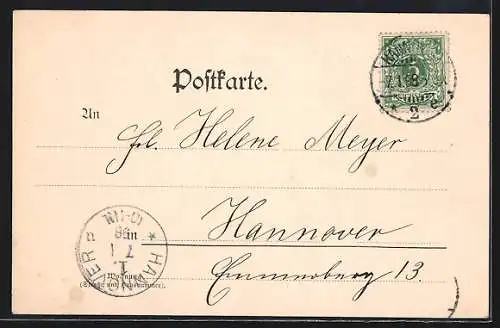 Postkarte.
An
Frl. Helene Meyer
Hannover
Emmerberg 13.
Wohnung
(Straße und Hausnummer).
HANNOVER
10-11N
7 1
98
1.
5
2